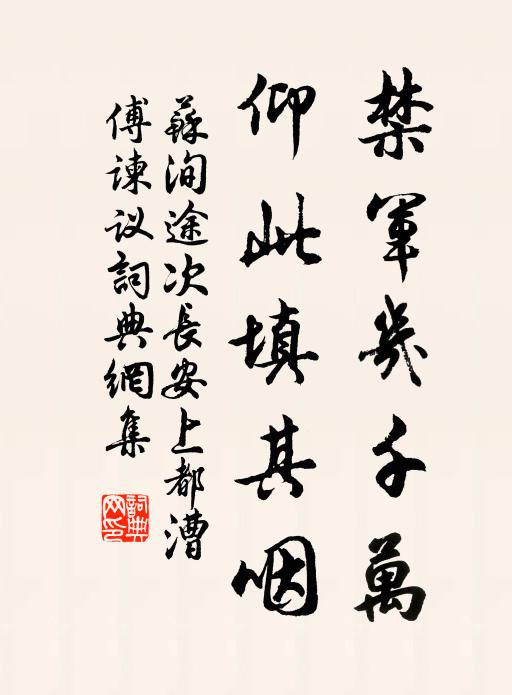 禁軍幾千萬
仰此填其咽
蘇洵途次長安上都漕
傅諫议詞典網集
詞典
网印